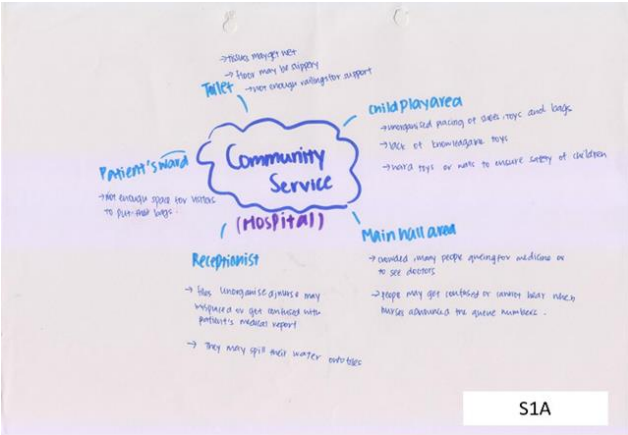 → tissues may get wet
→ floor may be slippery
→ not enough railings for support
Toilet
Child play area
→ unorganised placing of shoes, toys and bags
→ lack of knowledgable toys
→ hard toys or mats to ensure safety of children
Patient's ward
→ Not enough space for visitors
to put their bags.
Community
Service
(Hospital)
Main hall area
→ crowded, many people queing for medicine or
to see doctors
→ people may get confused or cannot hear when
nurses announced the queue numbers.
Receptionist
→ files unorganised, nurse may
misplaced or get confused with
patient's medical report
→ They may spill their water onto files
S1A